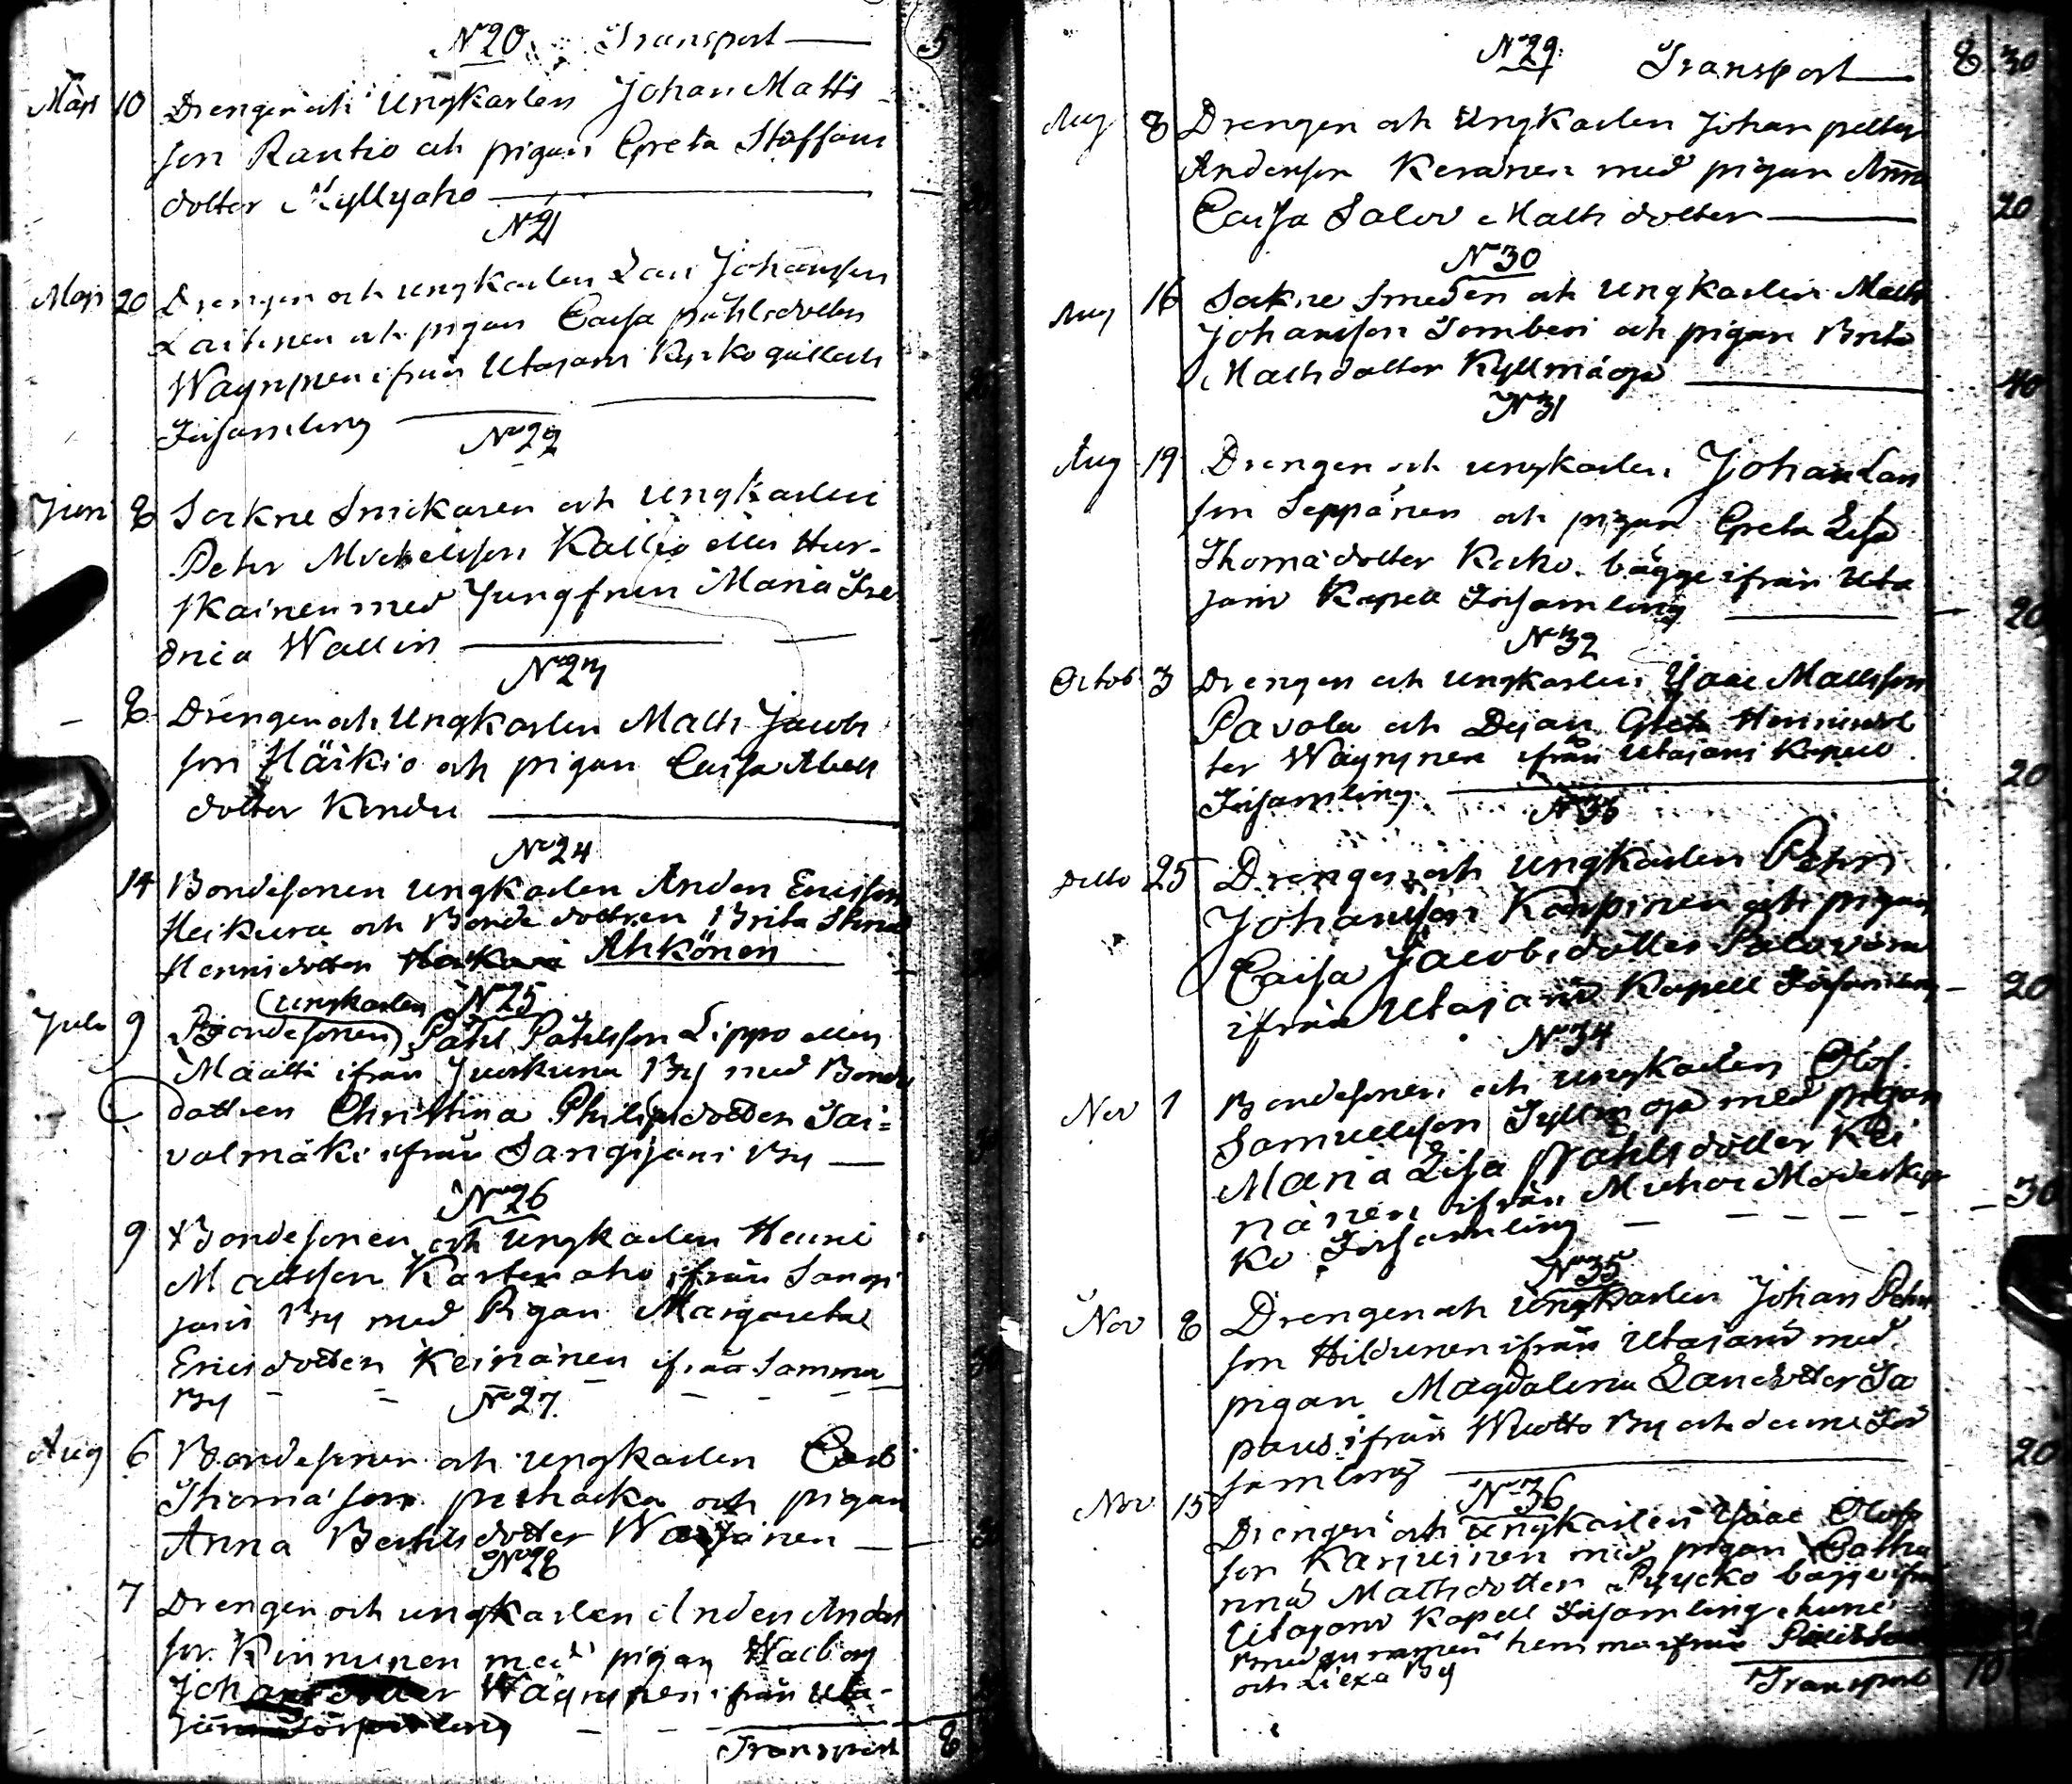 N 20. Transport — 5
Mars 10 Drengen och Ungkarlen Johan Matts
son Rautio och pigan Greta Staffans
dotter Myllyaho —
N 21
Mars 20 Drengen och ungkarlen Lars Johansson
Laitinen och pigan Caisa påhlsdotter
Wäyrynen ifrån Utajärvi
Församling —
No 22
Juni 8 Sockne Snickaren och Ungkarlen
Petter Michelsson Kallio eller Hur-
skainen med Jungfrun Maria Fre
drica Wallin —
No 23
— 8 Drengen och Ungkarlen Matts Jacobs
son Häikiö och pigan Caisa Abels
dotter Kendu —
No 24
14 Bondesonen ungkarlen Anders Ericsson
Heikura och Bonde dottren Brita Stina
Henricsdotter Ahkönen
ungkarlen No 25
Julii 9 Bondesonen Påhl Påhlsson Lippo eller
Määttä ifrån Juorkuna By med Bonde
dottren Christina Philipsdotter Sai=
valmäki ifrån Sangijärvi By —
No 26
9 Bondesonen och ungkarlen Henric
Mattsson Karsten aho ifrån Sangi
järvi By med Pigan Margareta
Ericsdotter Keinänen ifrån Samma
By
No 27.
Aug 6 Bondesonen och ungkarlen Carl
Thomasson och pigan
Anna Bertilsdotter
No 28
7 Drengen och ungkarlen Anders Anders
son Kinnunen med pigan Walborg
Johansdotter Wäyrynen ifrån Uta-
järvi Församling
Transport 8
No 29. Transport — 8 30
Aug 8 Drengen och Ungkarlen Johan petter
Anderson Keränen med pigan Anna
Caisa Salov Matts dotter — 20
No 30
Aug 16 Sockne Smeden och Ungkarlen Matts
Johansson Tomberi och pigan Brita
Mattsdotter Kyllmäoja — 40
No 31
Aug 19 Drengen och ungkarlen Johan Lars
son Seppänen och pigan Greta Lisa
Thomasdotter bägge ifrån Uta
järvi Kapell Församling — 20
No 32
Octob 3 Drengen och ungkarlen Isaac Mattsson
Pavola och Pigan Greta Henricsdot
ter Wäyrynen ifrån Utajärvi Kapell
Församling — 20
No 33
Ditto 25 Drengen och Ungkarlen Pehr
Johansson Karpinen och pigan
Caisa Jacobsdotter Palovaara
ifrån Utajärvi Kapell Församling — 20
No 34
Nov 1 Bondesonen och ungkarlen Olof
Samuelsson Kyllmäoja med pigan
Maria Lisa Påhlsdotter Kei
nänen ifrån Muhos Moderkyr
ko Församling — 30
No 35
Nov 8 Drengen och Ungkarlen Johan Pehr
son Hildunen ifrån Utajärvi med
pigan Magdalena Larsdotter Ta
pans ifrån Wuotto By och denne För
samling — 20
No 36
Nov 15 Drengen och ungkarlen Isaac Olofs
son Karjuinen med pigan Catha
rina Mattsdotter Pyycko bägge ifrån
Utajärvi Kapell Församling
hemma ifrån
och By
Transport 10